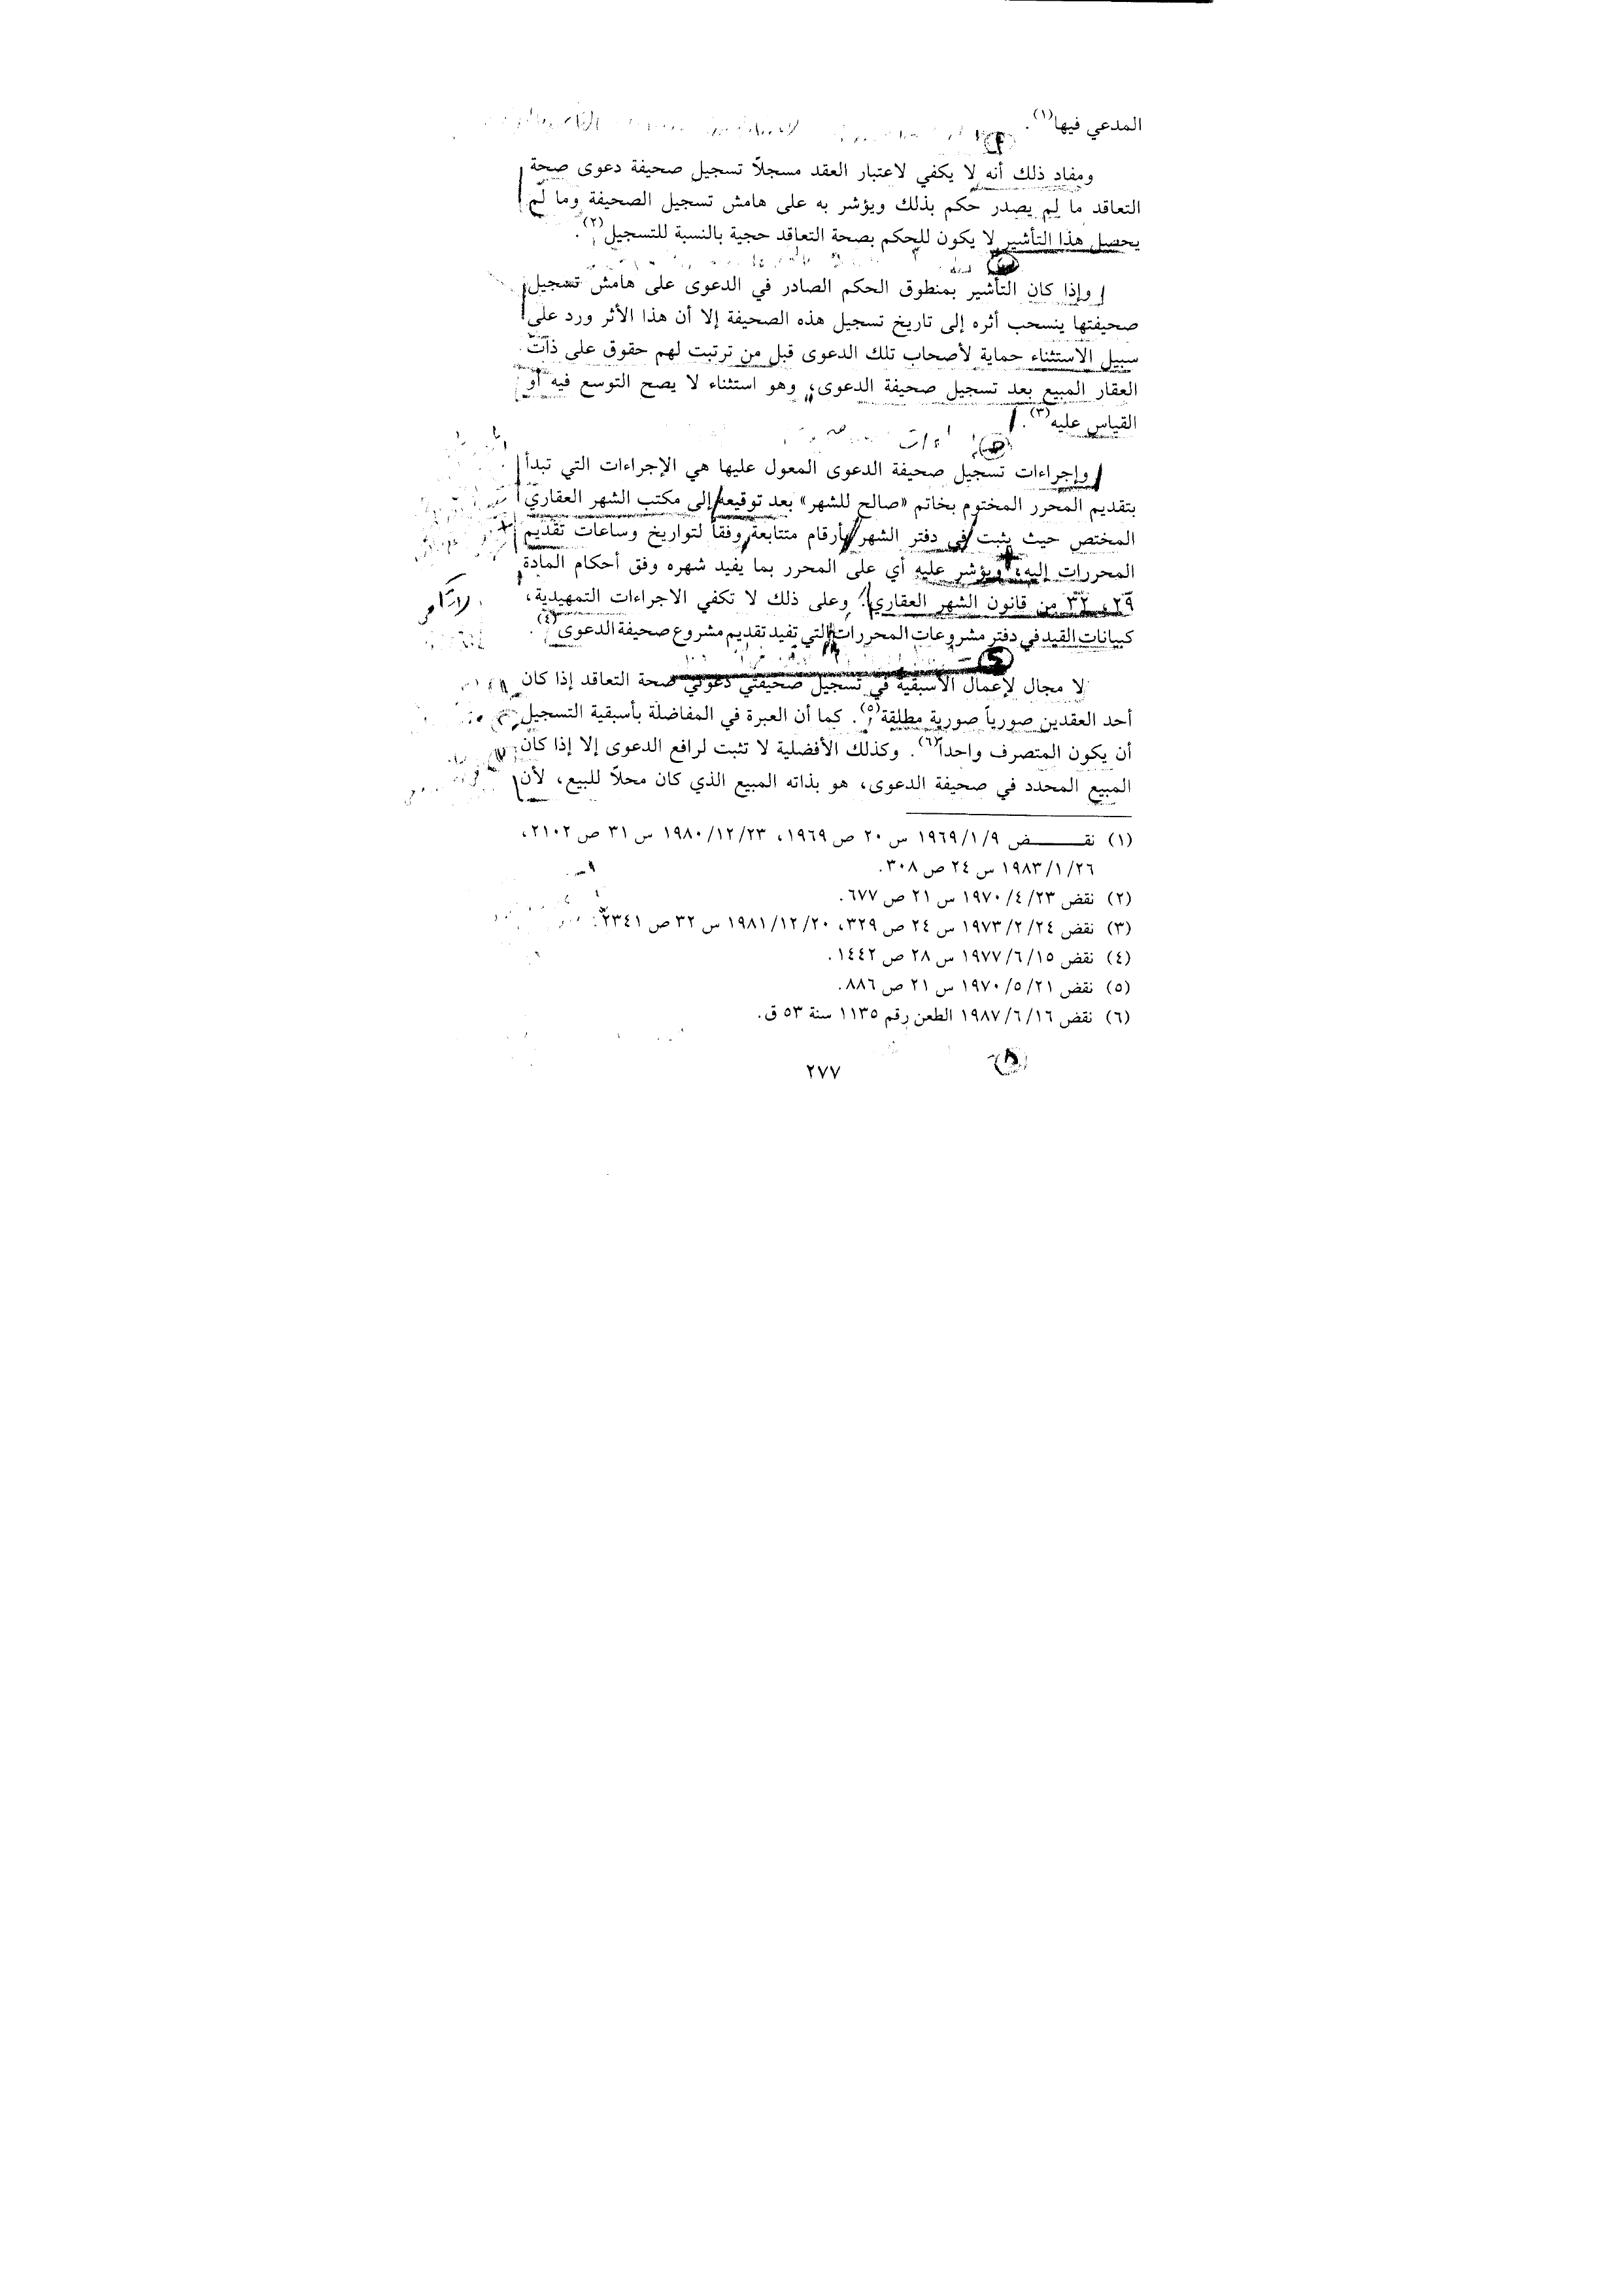 المدعي فيها(١).
ومفاد ذلك أنه لا يكفي لاعتبار العقد مسجلاً تسجيل صحيفة دعوى صحة
التعاقد ما لم يصدر حكم بذلك ويؤشر به على هامش تسجيل الصحيفة وما لم
يحصل هذا التأشير لا يكون للحكم بصحة التعاقد حجية بالنسبة للتسجيل(٢).
وإذا كان التأشير بمنطوق الحكم الصادر في الدعوى على هامش تسجيل
صحيفتها ينسحب أثره إلى تاريخ تسجيل هذه الصحيفة إلا أن هذا الأثر ورد على
سبيل الاستثناء حماية لأصحاب تلك الدعوى قبل من ترتبت لهم حقوق على ذات
العقار المبيع بعد تسجيل صحيفة الدعوى، وهو استثناء لا يصح التوسع فيه أو
القياس عليه(٣).
وإجراءات تسجيل صحيفة الدعوى المعول عليها هي الإجراءات التي تبدأ
بتقديم المحرر المختوم بخاتم «صالح للشهر» بعد توقيعه إلى مكتب الشهر العقاري
المختص حيث يثبت في دفتر الشهر بأرقام متتابعة وفقاً لتواريخ وساعات تقديم
المحررات إليه، ويؤشر عليه أي على المحرر بما يفيد شهره وفق أحكام المادة
٢٩، ٣٢ من قانون الشهر العقاري. وعلى ذلك لا تكفي الاجراءات التمهيدية،
كبيانات القيد في دفتر مشروعات المحررات التي تفيد تقديم مشروع صحيفة الدعوى(٤).
لا مجال لإعمال الأسبقية في تسجيل صحيفتي دعوتي صحة التعاقد إذا كان
أحد العقدين صورياً صورية مطلقة(٥). كما أن العبرة في المفاضلة بأسبقية التسجيل
أن يكون المتصرف واحداً(٦). وكذلك الأفضلية لا تثبت لرافع الدعوى إلا إذا كان
المبيع المحدد في صحيفة الدعوى، هو بذاته المبيع الذي كان محلاً للبيع، لأن
(١) نقــــــض ١٩٦٩/١/٩ س ٢٠ ص ١٩٦٩، ١٩٨٠/١٢/٢٣ س ٣١ ص ٢١٠٢،
١٩٨٣/١/٢٦ س ٢٤ ص ٣٠٨.
(٢) نقض ١٩٧٠/٤/٢٣ س ٢١ ص ٦٧٧.
(٣) نقض ١٩٧٣/٢/٢٤ س ٢٤ ص ٣٢٩، ١٩٨١/١٢/٢٠ س ٣٢ ص ٢٣٤١.
(٤) نقض ١٩٧٧/٦/١٥ س ٢٨ ص ١٤٤٢.
(٥) نقض ١٩٧٠/٥/٢١ س ٢١ ص ٨٨٦.
(٦) نقض ١٩٨٧/٦/١٦ الطعن رقم ١١٣٥ سنة ٥٣ ق.
٢٧٧